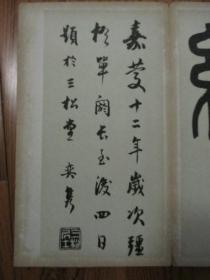 嘉慶十二年歲次疆
梧單閼長至後四日
題於三松堂 奕雋